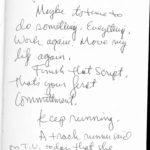 Maybe to time to
do something. Everything.
Work again. Move my
life again.
Finish that Script,
thats your first
Committment.
Keep running.
A track runner said
on T.V. today that she